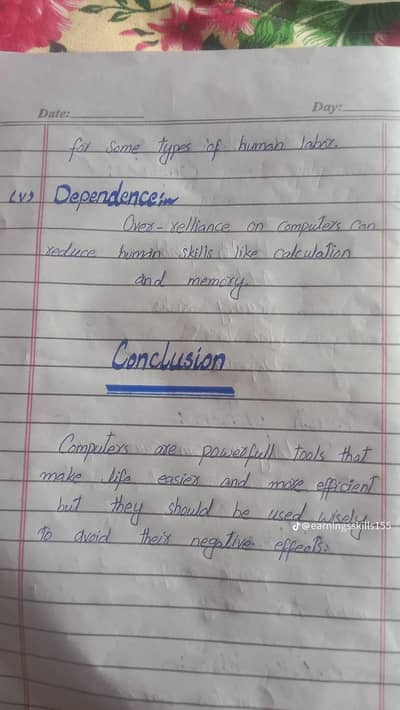 Date:
Day:
for some types of human labor.
(v) Dependence:
Over-relliance on computers can
reduce human skills like calculation
and memory.
Conclusion
Computers are powerfull tools that
make life easier and more efficient
but they should be used wisely
to avoid their negative effects.
@earningsskills155